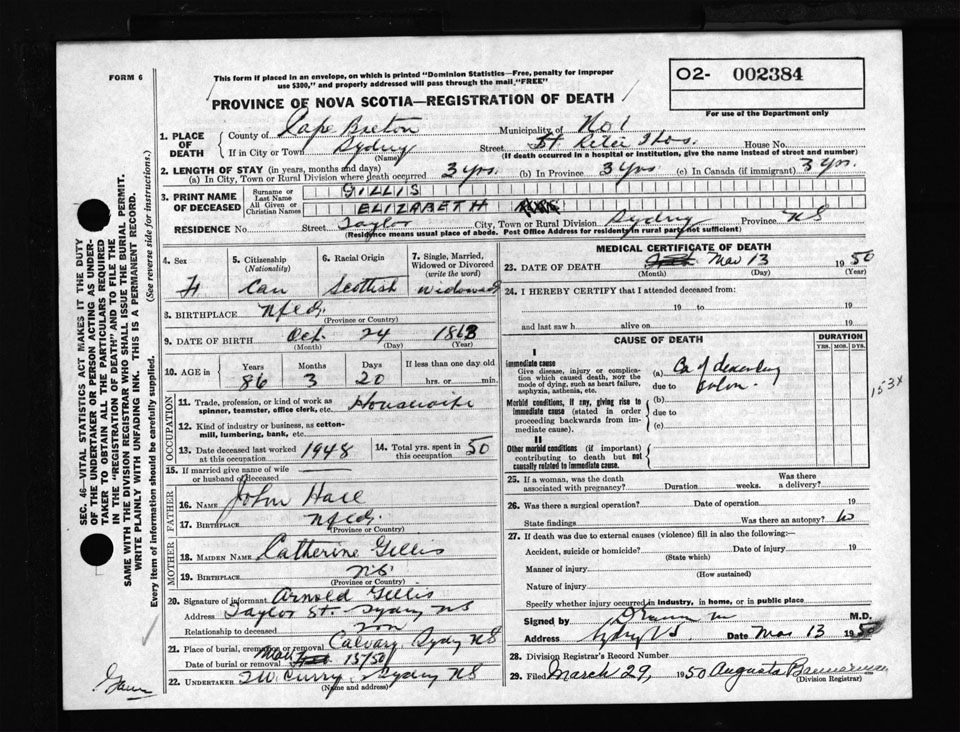 FORM 6
This form if placed in an envelope, on which is printed "Dominion Statistics—Free, penalty for improper
use $300," and properly addressed will pass through the mail "FREE"
O2- 002384
For use of the Department only
PROVINCE OF NOVA SCOTIA—REGISTRATION OF DEATH
SEC. 46—VITAL STATISTICS ACT MAKES IT THE DUTY
OF THE UNDERTAKER OR PERSON ACTING AS UNDER-
TAKER TO OBTAIN ALL THE PARTICULARS REQUIRED
IN THE "REGISTRATION OF DEATH" AND TO FILE THE
SAME WITH THE DIVISION REGISTRAR WHO SHALL ISSUE THE BURIAL PERMIT.
WRITE PLAINLY WITH UNFADING INK. THIS IS A PERMANENT RECORD.
Every item of information should be carefully supplied. (See reverse side for instructions.)
1. PLACE OF DEATH
County of Cape Breton Municipality of No 1
If in City or Town Sydney Street St. Rita Hos. House No.
(Name) (If death occurred in a hospital or institution, give the name instead of street and number)
2. LENGTH OF STAY (in years, months and days)
(a) In City, Town or Rural Division where death occurred 3 yrs. (b) In Province 3 yrs (c) In Canada (if immigrant) 3 yrs.
3. PRINT NAME OF DECEASED
Surname or Last Name GILLIS
All Given or Christian Names ELIZABETH
RESIDENCE No. Street Taylor City, Town or Rural Division Sydney Province NS
(Residence means usual place of abode. Post Office Address for residents in rural parts not sufficient)
4. Sex F
5. Citizenship (Nationality) Can
6. Racial Origin Scottish
7. Single, Married, Widowed or Divorced (write the word) Widowed
8. BIRTHPLACE Nfld.
(Province or Country)
9. DATE OF BIRTH Oct. 24 1863
(Month) (Day) (Year)
10. AGE in Years 86 Months 3 Days 20 If less than one day old hrs. or min.
OCCUPATION
11. Trade, profession, or kind of work as spinner, teamster, office clerk, etc. Housewife
12. Kind of industry or business, as cotton-mill, lumbering, bank, etc.
13. Date deceased last worked at this occupation 1948
14. Total yrs. spent in this occupation 50
15. If married give name of wife or husband of deceased
FATHER
16. NAME John Hare
17. BIRTHPLACE Nfld.
(Province or Country)
MOTHER
18. MAIDEN NAME Catherine Gillis
19. BIRTHPLACE NS
(Province or Country)
20. Signature of informant Arnold Gillis
Address Taylor St. Sydney NS
Relationship to deceased son
21. Place of burial, cremation or removal Calvary, Sydney NS
Date of burial or removal Mar 15/50
22. UNDERTAKER Curry, Sydney NS
(Name and address)
MEDICAL CERTIFICATE OF DEATH
23. DATE OF DEATH Mar 13 1950
(Month) (Day) (Year)
24. I HEREBY CERTIFY that I attended deceased from:
19 to 19
and last saw h alive on 19
CAUSE OF DEATH
DURATION
YRS. MOS. DYS.
I
Immediate cause
Give disease, injury or complication which caused death, nor the mode of dying, such as heart failure, asphyxia, asthenia, etc.
(a) Ca of descending
due to colon.
Morbid conditions, if any, giving rise to immediate cause (stated in order proceeding backwards from immediate cause).
(b)
due to
(c)
II
Other morbid conditions (if important) contributing to death but not causally related to immediate cause.
153x
25. If a woman, was the death associated with pregnancy? Duration weeks. Was there a delivery?
26. Was there a surgical operation? Date of operation 19
State findings Was there an autopsy? No
27. If death was due to external causes (violence) fill in also the following:—
Accident, suicide or homicide? Date of injury 19
(State which)
Manner of injury
(How sustained)
Nature of injury
Specify whether injury occurred in industry, in home, or in public place
Signed by M.D.
Address Sydney NS Date Mar 13 1950
28. Division Registrar's Record Number
29. Filed March 29, 1950 Augusta Bannerman
(Division Registrar)